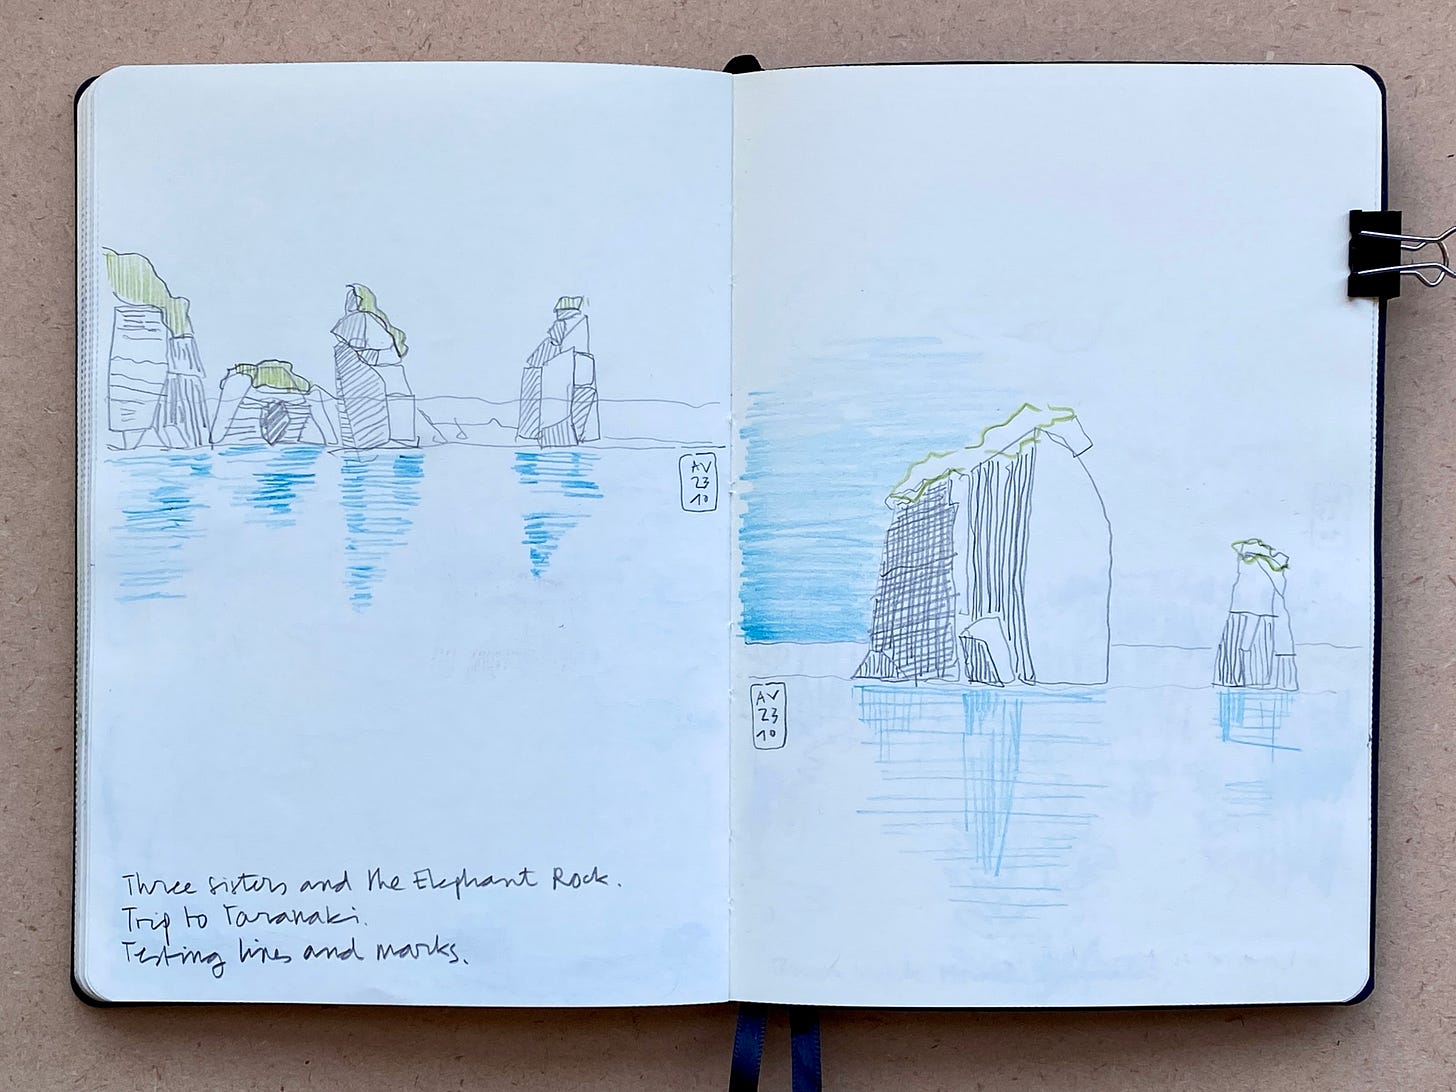 AV
23
10
Three sisters and the Elephant Rock.
Trip to Taranaki.
Testing lines and marks.
AV
23
10